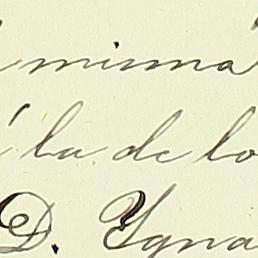 misma
la de lo
D. Ygna